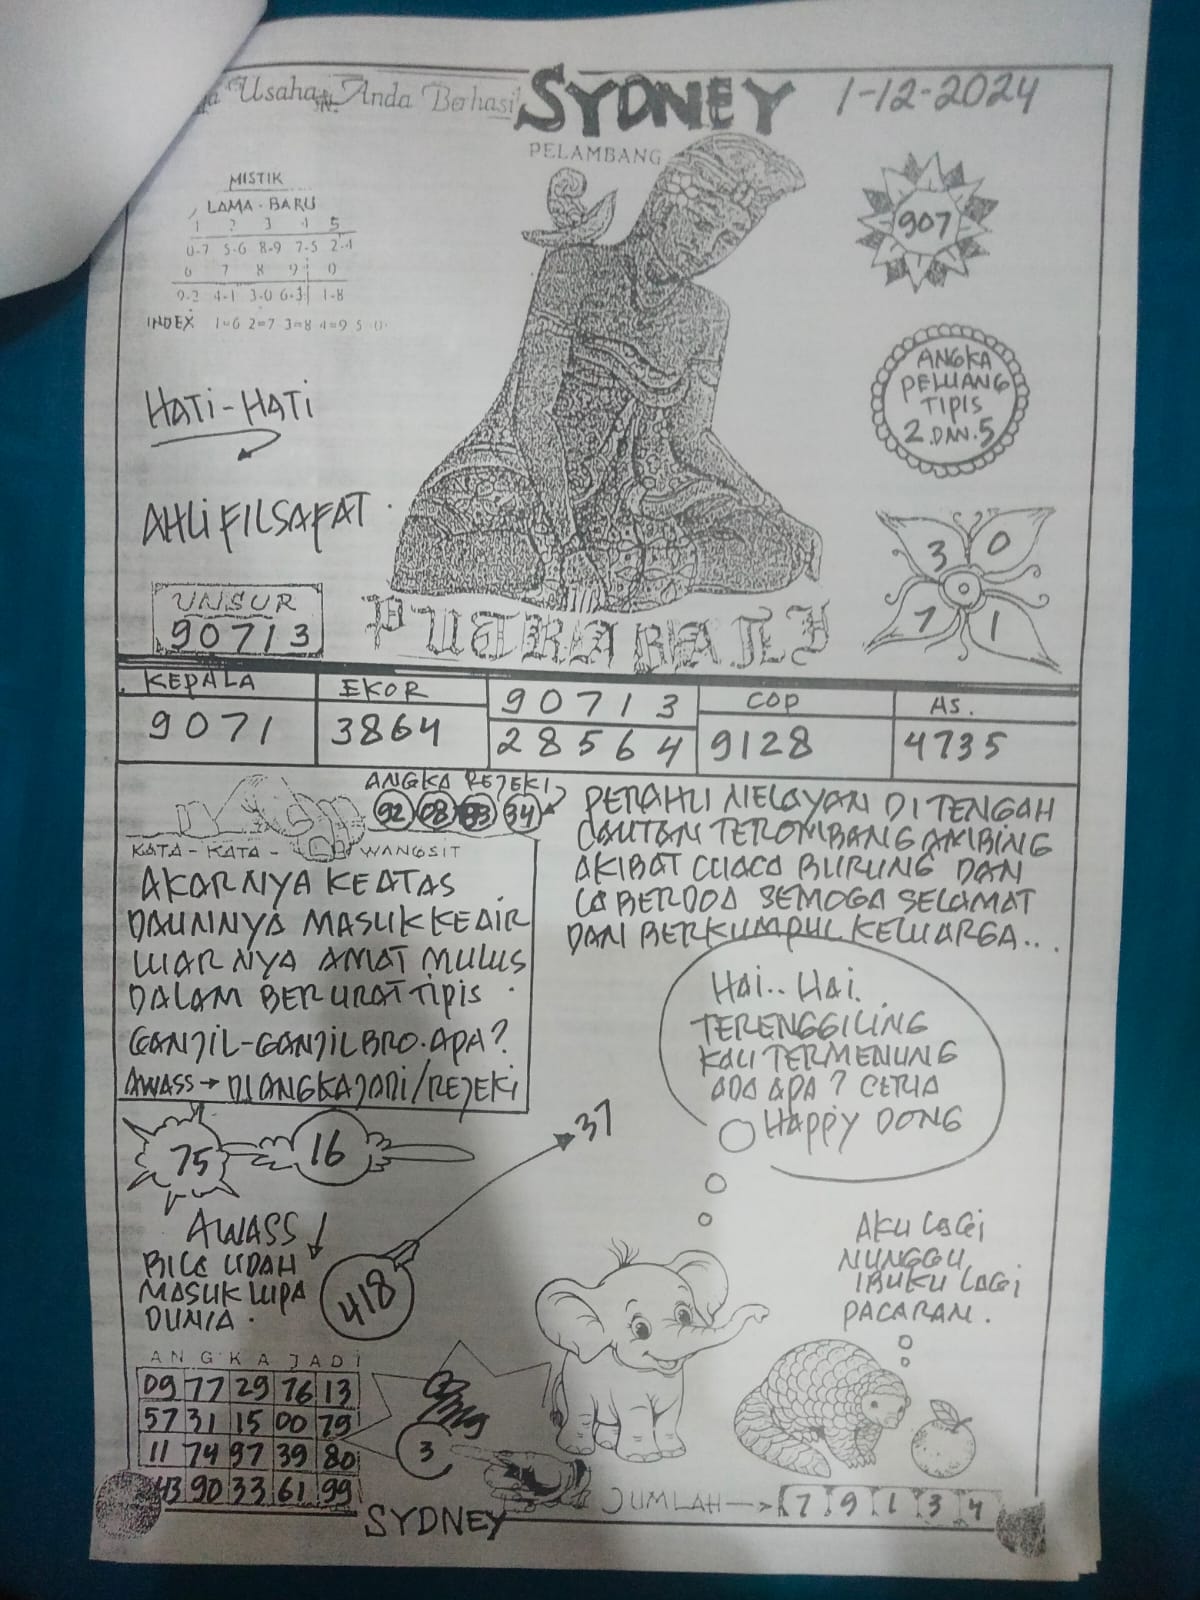 Usaha Anda Berhasil
SYDNEY
1-12-2024
PELAMBANG
MISTIK
LAMA - BARU
1 2 3 4 5
0-7 5-6 8-9 7-5 2-4
6 7 8 9 0
9-2 4-1 3-0 6-3 1-8
INDEX 1=6 2=7 3=8 4=9 5 0
907
ANGKA
PELUANG
TIPIS
2.DAN.5
HATI-HATI
AHLI FILSAFAT.
UNSUR
90713
PUTRA BALI
3 0
7 1
KEPALA
9071
EKOR
3864
90713
28564
COP
9128
AS.
4735
ANGKA REJEKI
92 08 34
KATA-KATA-WANGSIT
AKARNYA KEATAS
DAUNNYA MASUK KEAIR
LUARNYA AMAT MULUS
DALAM BERURAT TIPIS
GANJIL-GANJIL BRO.APA?
AWASS → DI ANGKA JADI/REJEKI
PERAHU NELAYAN DI TENGAH
LAUTAN TEROMBANG AMBING
AKIBAT CUACA BURUNG DAN
IA BERDOA SEMOGA SELAMAT
DAN BERKUMPUL KELUARGA...
HAI.. HAI.
TERENGGILING
KAU TERMENUNG
ADA APA? CERIA
HAPPY DONG
75
16
37
AWASS
BILA UDAH
MASUK LUPA
DUNIA.
418
AKU LAGI
NUNGGU
IBUKU LAGI
PACARAN.
ANGKA JADI
09 77 29 76 13
57 31 15 00 79
11 74 97 39 80
43 90 33 61 99
3
SYDNEY
JUMLAH → 7 9 1 3 4